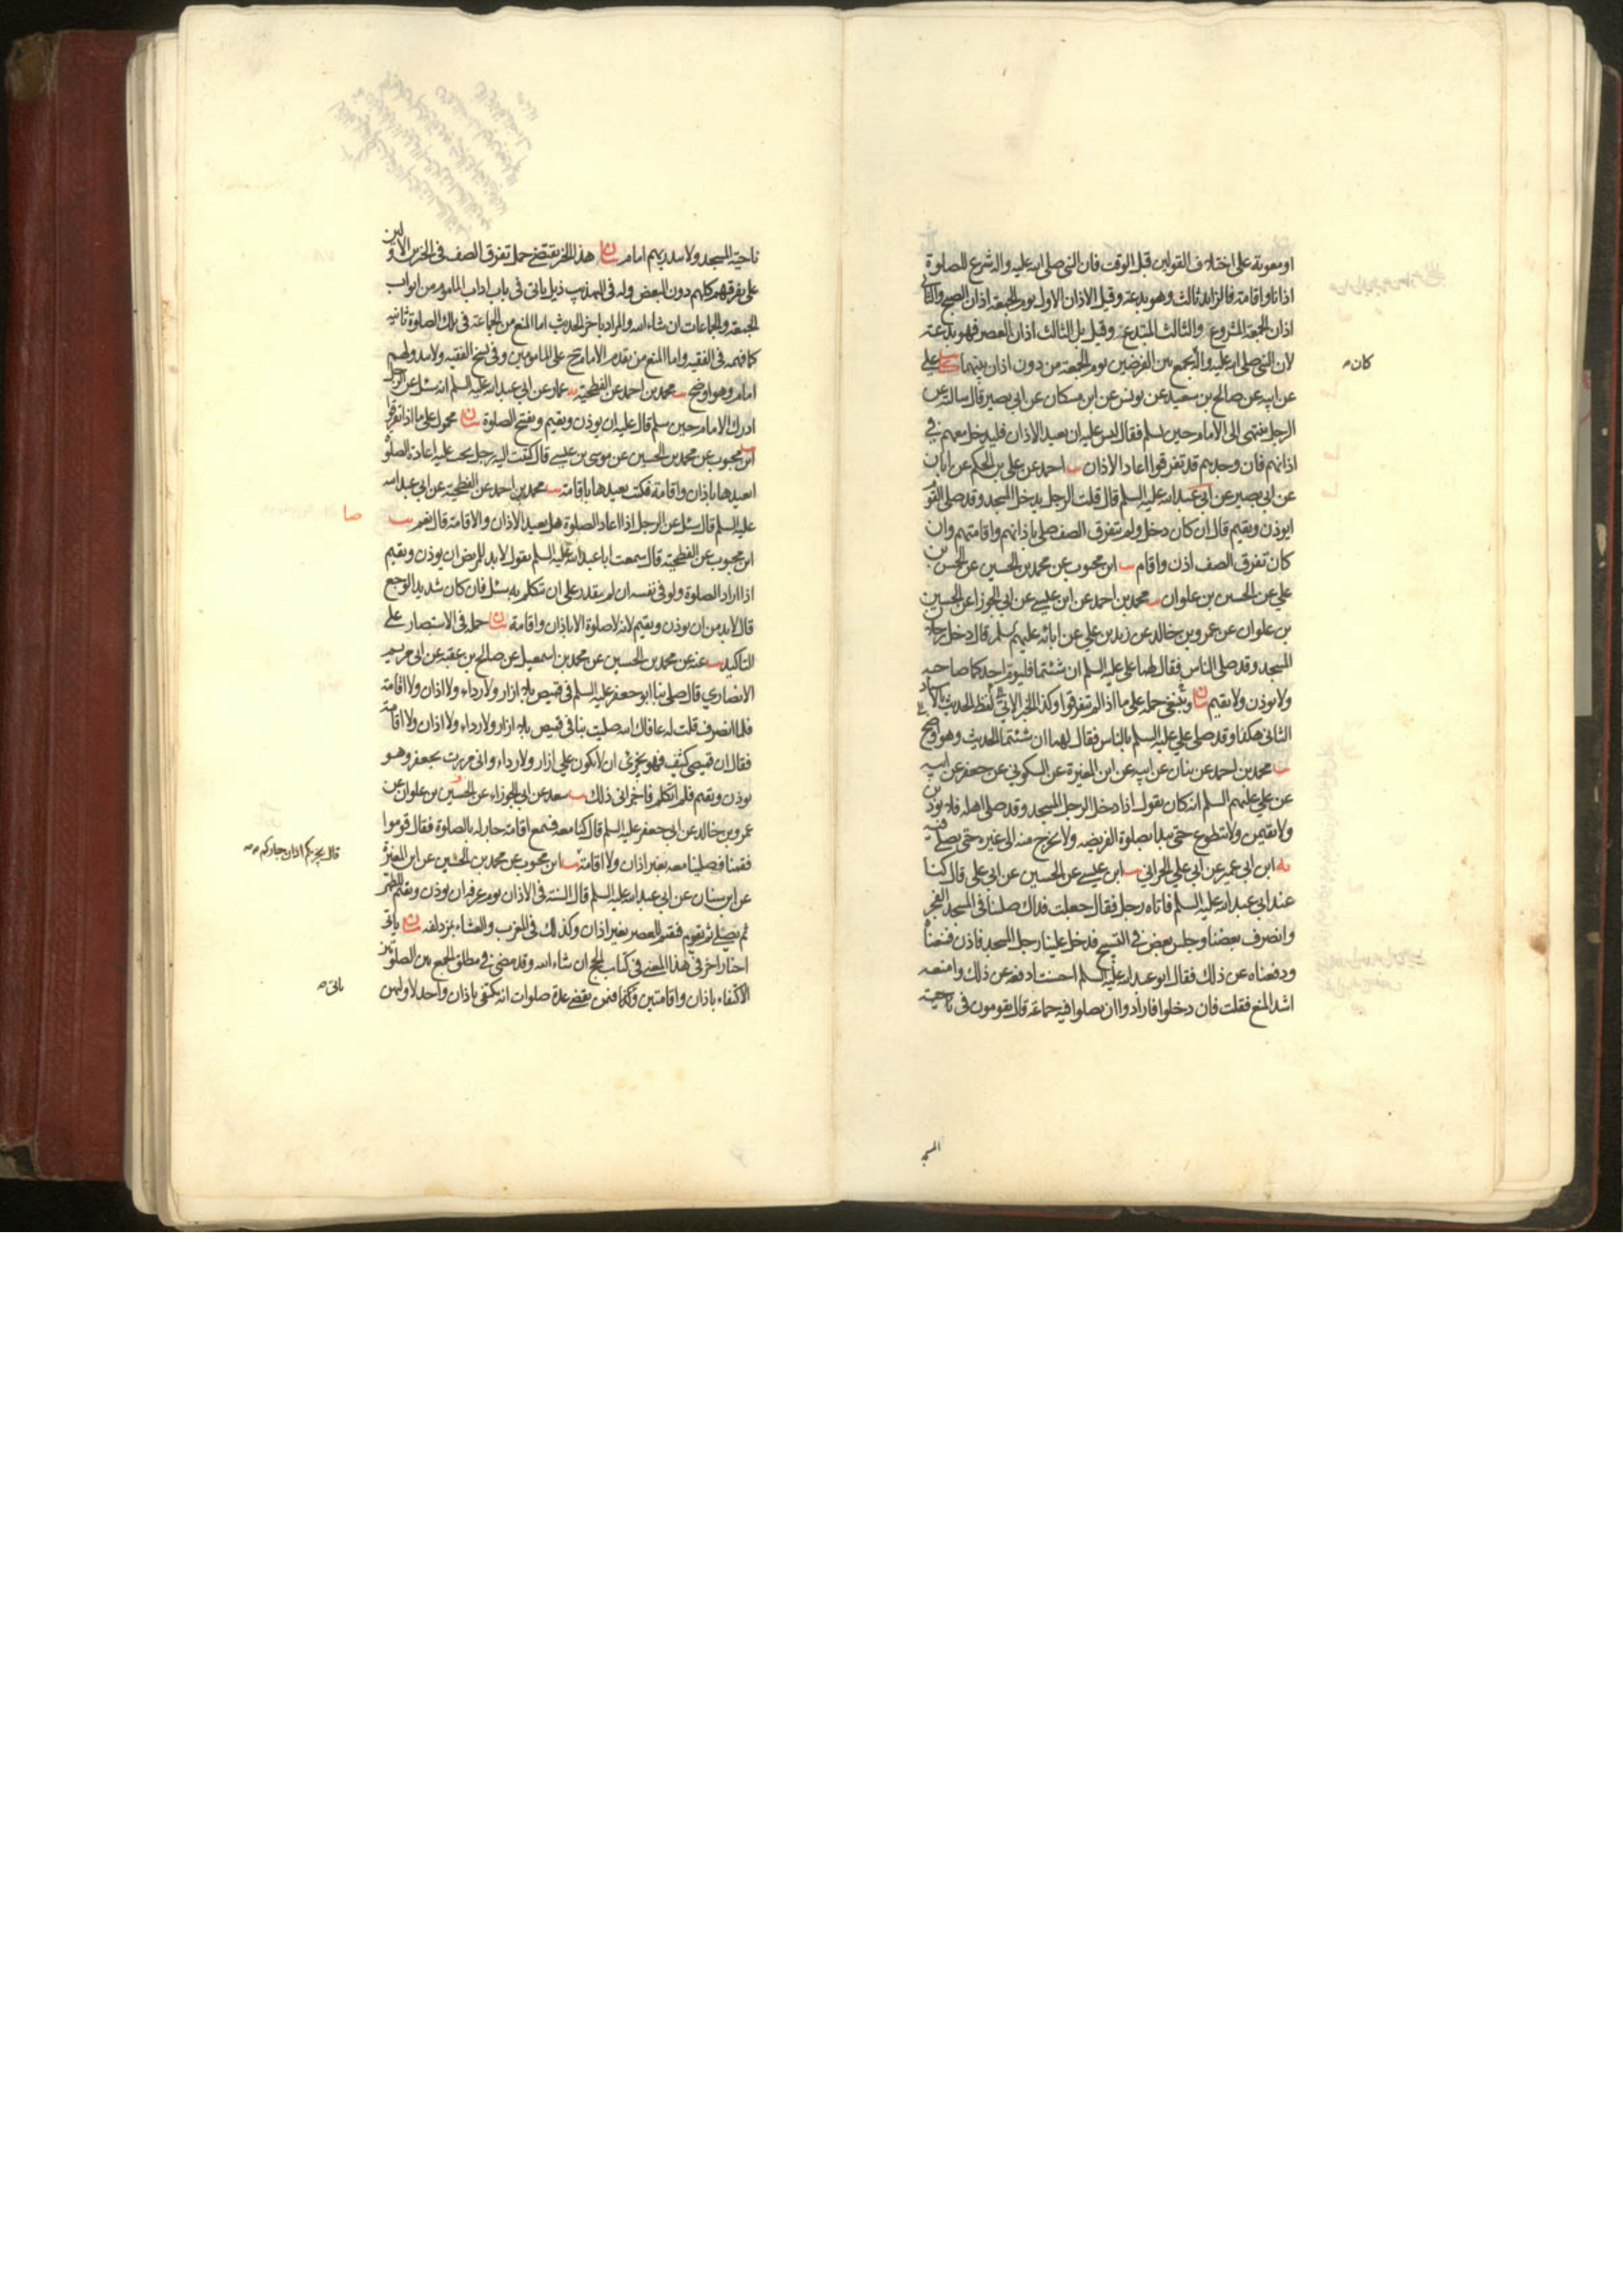 او معوية على اختلاف القولين قبل الوقت فان النبي صلى الله عليه واله شرع للصلوة
اذانا واقامة فالزايد ثالث وهو بدعة وقيل الاذان الاول يوم الجمعة اذان الصبح والثاني
اذان الجمعة المشروع والثالث المبتدع وقيل بل الثالث اذان العصر فهو بدعة
لان النبي صلى الله عليه واله جمع بين الفرضين يوم الجمعة من دون اذان بينهما كا علي
كان
عن ابيه عن صالح بن سعيد عن يونس عن ابن مسكان عن ابي بصير قال سالته عن
الرجل ينتهي الى الامام حين يسلم فقال ليس عليه ان يعيد الاذان فليدخل معهم في
اذانهم فان وجدهم قد تفرقوا اعاد الاذان يب احمد عن علي بن الحكم عن ابان
عن ابي بصير عن ابي عبد الله عليه السلم قال قلت الرجل يدخل المسجد وقد صلى القوم
ايوذن ويقيم قال ان كان دخل ولم يتفرق الصف صلى باذانهم واقامتهم وان
كان تفرق الصف اذن واقام يب ابن محبوب عن محمد بن الحسين عن الحسن بن
علي عن الحسين بن علوان يب محمد بن احمد عن ابن عيسى عن ابي الجوزا عن الحسين
بن علوان عن عمرو بن خالد عن زيد بن علي عن ابائه عليهم السلم قال دخل رجلان
المسجد وقد صلى الناس فقال لهما علي عليه السلم ان شئتما فليؤم احدكما صاحبه
ولا يوذن ولا يقيم بيان وينبغي حمله على ما اذا لم يتفرقوا وكذا الخبر الاتي لفظ الحديث بالاسناد
الثاني هكذا وقد صلى علي عليه السلم بالناس فقال لهما ان شئتما الحديث وهو اوضح
يب محمد بن احمد عن بنان عن ابيه عن ابن المغيرة عن السكوني عن جعفر عن ابيه
عن علي عليهم السلم انه كان يقول اذا دخل الرجل المسجد وقد صلى اهله فلا يوذنن
ولا يقيمن ولا يتطوع حتى يبدا بصلوة الفريضه ولا يخرج منه الى غيره حتى يصلي فيه
يه ابن ابي عمير عن ابي علي الحراني يب ابن عيسى عن الحسين عن ابي علي قال كنا
عند ابي عبد الله عليه السلم فاتاه رجل فقال جعلت فداك صلينا في المسجد الفجر
وانصرف بعضنا وجلس بعض في التسبيح فدخل علينا رجل المسجد فاذن فمنعناه
ودفعناه عن ذلك فقال ابو عبد الله عليه السلم احسنت ادفعه عن ذلك وامنعه
اشد المنع فقلت فان دخلوا فارادوا ان يصلوا فيه جماعة قال يقومون في ناحية
المسجد
ناحية المسجد ولا يبدر بهم امام بيان هذا الخبر يقتضي حمل تفرق الصف في الخبرين الاولين
على تفرقهم كلهم دون البعض وله في التهذيب ذيل ياتي في باب اداب الماموم من ابواب
الجمعة والجماعات ان شاء الله والمراد باخر الحديث اما المنع من الجماعة في تلك الصلوة ثانيه
كما فهمه في الفقيه واما المنع من تقدم الامام ح على المامومين وفي نسخ الفقيه ولا يبدو لهم
امام وهو اوضح يب محمد بن احمد عن الفطحية يه عمار عن ابي عبد الله عليه السلم انه سئل عن الرجل
ادرك الامام حين سلم قال عليه ان يوذن ويقيم ويفتتح الصلوة بيان محمول على ما اذا تفرقوا
يب ابن محبوب عن محمد بن الحسين عن موسى بن عيسى قال كتبت اليه رجل يجب عليه اعادة الصلوة
ايعيدها باذان واقامة فكتب يعيدها باقامة يب محمد بن احمد عن الفطحية عن ابي عبد الله
عليه السلم قال سئل عن الرجل اذا اعاد الصلوة هل يعيد الاذان والاقامة قال نعم يب
صا
ابن محبوب عن الفطحية قال سمعت ابا عبد الله عليه السلم يقول لا بد للمريض ان يوذن ويقيم
اذا اراد الصلوة ولو في نفسه ان لم يقدر على ان يتكلم به سئل فان كان شديد الوجع
قال لا بد من ان يوذن ويقيم لانه لا صلوة الا باذان واقامة بيان حمله في الاستبصار على
التاكيد يب عنه عن محمد بن الحسين عن محمد بن اسمعيل عن صالح بن عقبة عن ابي مريم
الانصاري قال صلى بنا ابو جعفر عليه السلم في قميص بلا ازار ولا رداء ولا اذان ولا اقامة
فلما انصرف قلت له عافاك الله صليت بنا في قميص بلا ازار ولا رداء ولا اذان ولا اقامة
فقال ان قميصي كثيف فهو يجزئ ان لا يكون علي ازار ولا رداء واني مررت بجعفر وهو
يوذن ويقيم فلم اتكلم فاجزاني ذلك يب سعد عن ابي الجوزاء عن الحسين بن علوان عن
عمرو بن خالد عن ابي جعفر عليه السلم قال كنا معه فسمع اقامة جار له بالصلوة فقال قوموا
فقمنا فصلينا معه بغير اذان ولا اقامة يب ابن محبوب عن محمد بن الحسين عن ابن المغيرة
قال يجزيكم اذان جاركم
عن ابن سنان عن ابي عبد الله عليه السلم قال السنة في الاذان يوم عرفه ان يوذن ويقيم للظهر
ثم يصلي ثم يقوم فيقيم للعصر بغير اذان وكذلك في المغرب والعشاء بمزدلفه بيان ياتي
اخبار اخر في هذا المعنى في كتاب الحج ان شاء الله وقد مضى في مطلق الجمع بين الصلوتين
الاكتفاء باذان واقامتين وكذا فمن يقضي عدة صلوات انه يكتفي باذان واحد لاوليهن
ياتي